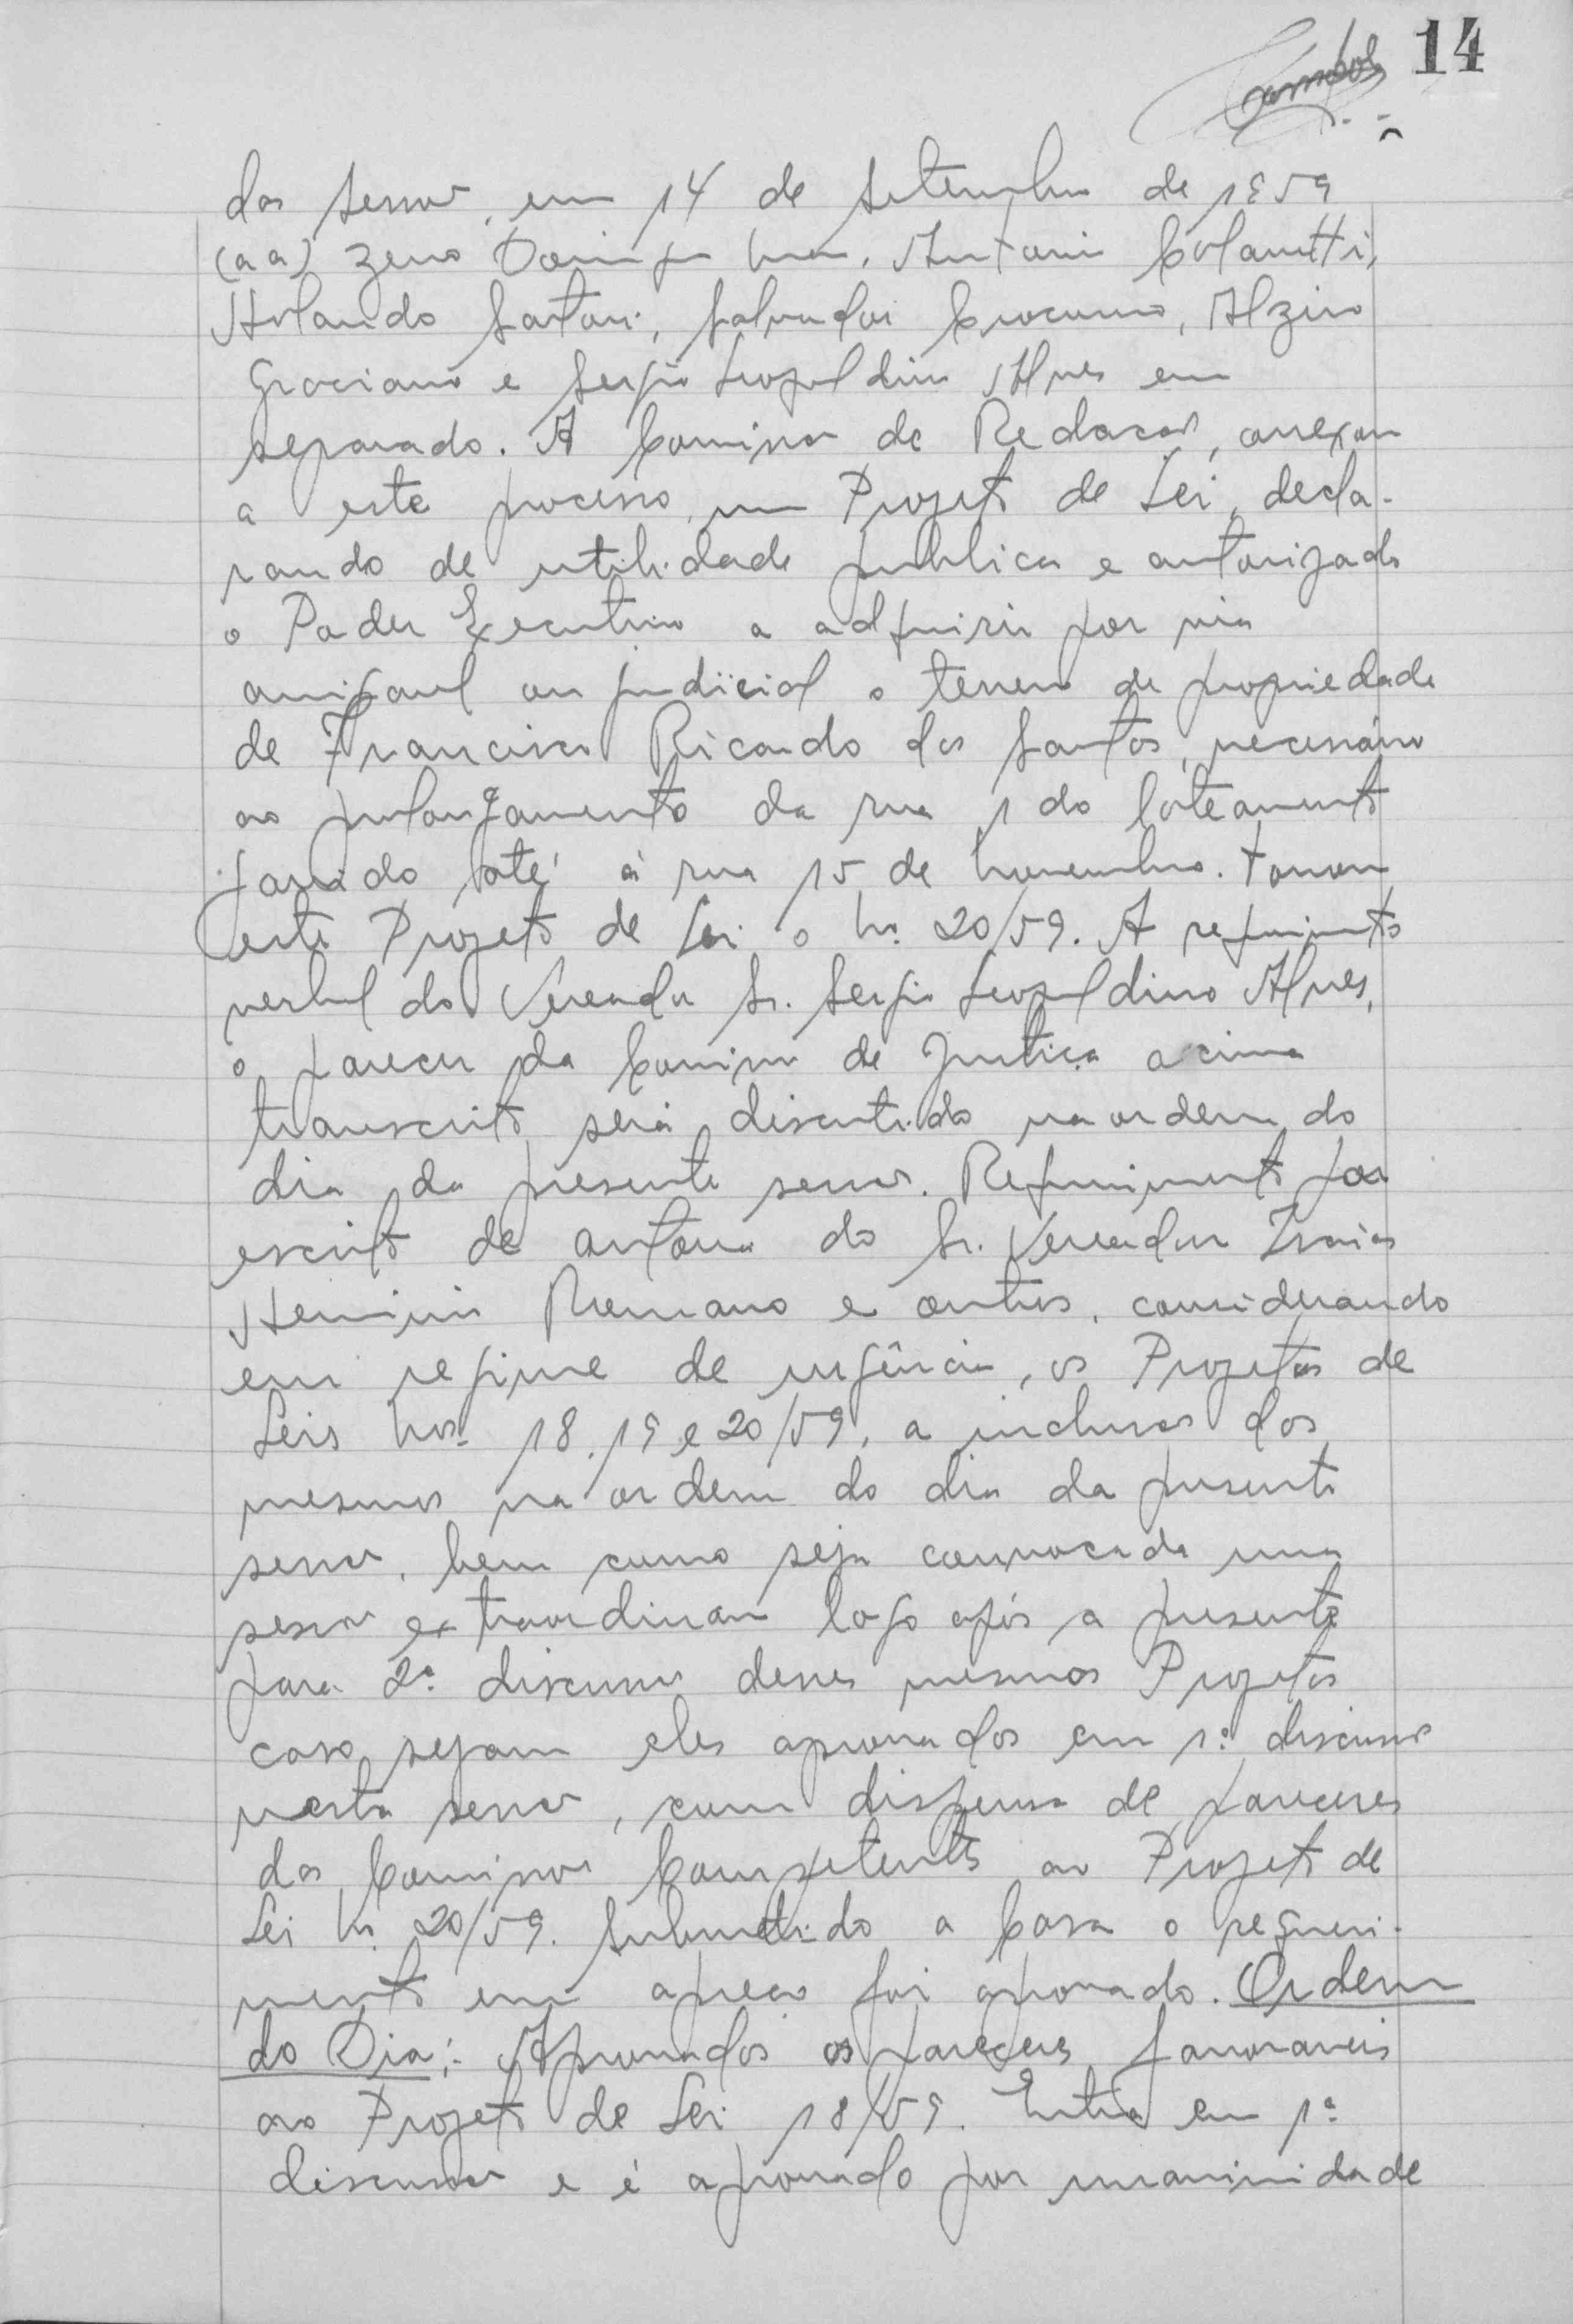 14
das sessões, em 14 de Setembro de 1959
(aa) Zeno Domingos, Antonio Colanetti,
Orlando Satori, Salvador Crocomo, Alziro
Graciano e Sergio Leopoldino Alves em
separado. A Comissão de Redacão, anexou
a este processo, um Projeto de Lei, decla-
rando de utilidade publica e autorizado
o Poder Executivo a adquirir por via
amigavel ou judicial o terreno de propriedade
de Francisco Ricardo dos Santos, necessário
ao prolongamento da rua 1 do loteamento
até à rua 15 de Novembro. Tomou
este Projeto de Lei o nº 20/59. A requerimento
verbal do Vereador Sr. Sergio Leopoldino Alves,
o parecer da Comissão de Justiça acima
transcrito, será discutido na ordem do
dia da presente sessão. Requerimento por
escrito de autoria do Sr. Vereador Izaias
Herminio Romano e outros, considerando
em regime de urgência, os Projetos de
Leis nos. 18, 19 e 20/59, a inclusão dos
mesmos na ordem do dia da presente
sessão, bem como seja convocada uma
sessão extraordinaria logo após a presente
para 2ª discussão desses mesmos Projetos
caso sejam eles aprovados em 1ª discussão
nesta sessão, com dispensa de pareceres
das Comissões Competentes ao Projeto de
Lei nº 20/59. Submetido a Casa o requeri-
mento em apreço foi aprovado. Ordem
do Dia:- Aprovados os pareceres favoraveis
ao Projeto de Lei 18/59. Entra em 1ª
discussão e é aprovado por unanimidade